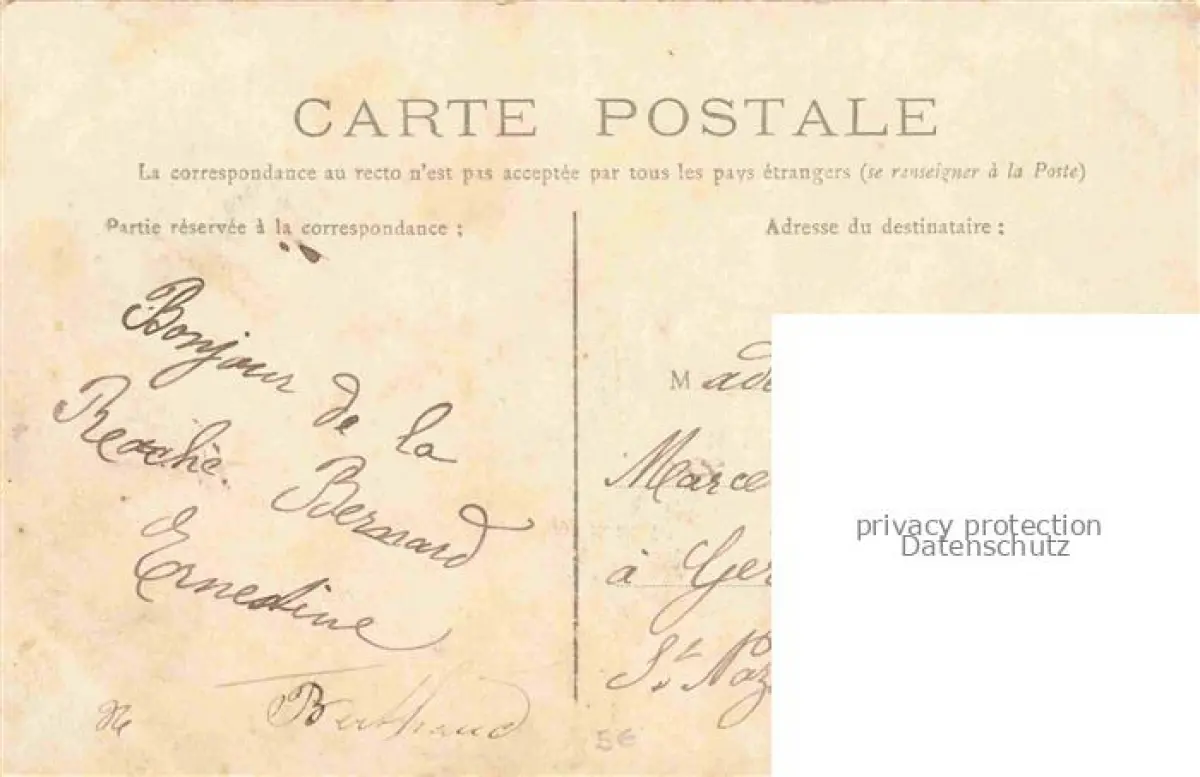 CARTE POSTALE
La correspondance au recto n'est pas acceptée par tous les pays étrangers (se renseigner à la Poste)
Partie réservée à la correspondance :
Bonjour de la
Roche Bernard
Ernestine
Adresse du destinataire :
M ade
Marce
à Ger
St Naz
privacy protection
Datenschutz
56